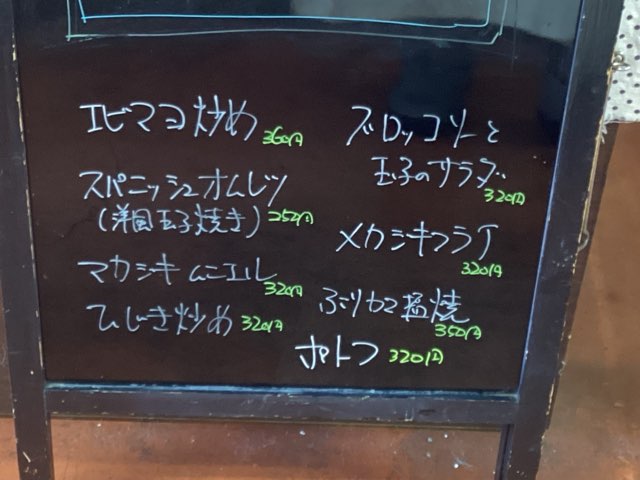 エビマヨ炒め 360円
スパニッシュオムレツ
(洋風玉子焼き) 252円
マカジキムニエル 320円
ひじき炒め 320円
ブロッコリーと
玉子のサラダ 320円
メカジキフライ 320円
ぶりカマ塩焼 350円
ポトフ 320円